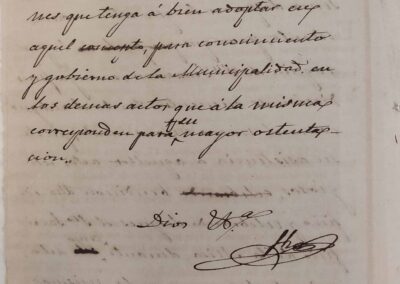 nes que tenga á bien adoptar en
aquel concepto, para conocimiento
y gobierno de la Municipalidad en
los demas actos que á la misma
corresponden para su mayor ostenta-
cion.
Dios &.ª